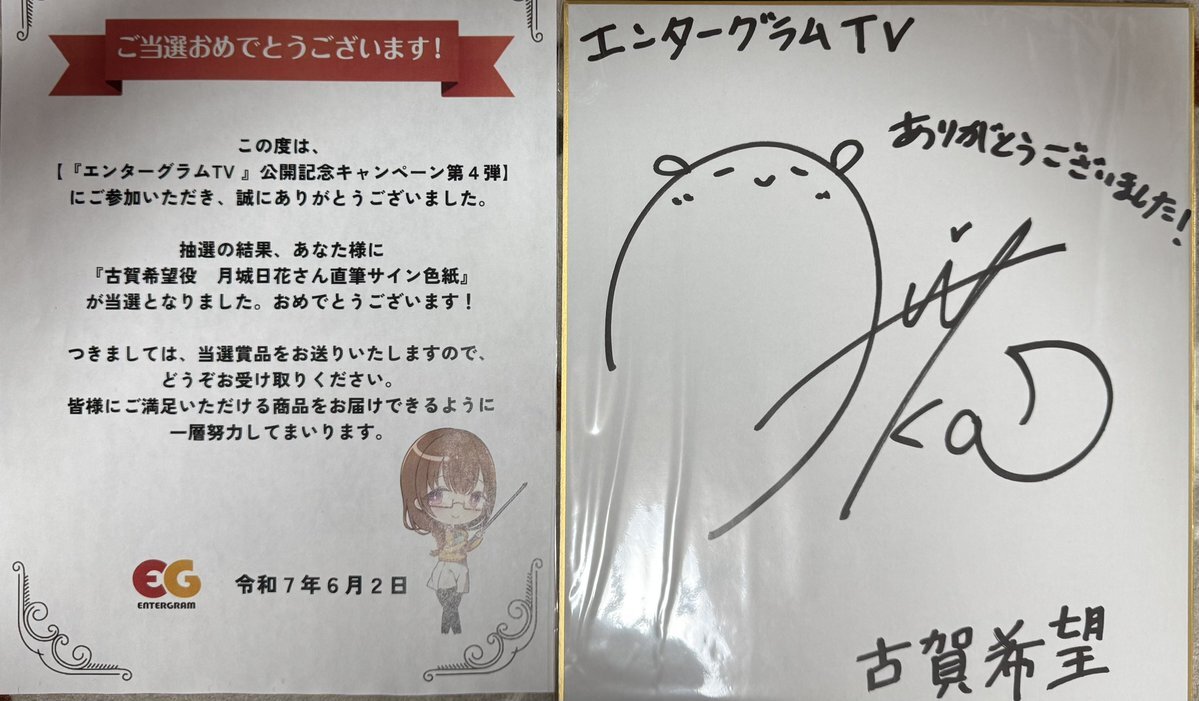 ご当選おめでとうございます！
この度は、
【『エンターグラムTV 』公開記念キャンペーン第４弾】
にご参加いただき、誠にありがとうございました。
抽選の結果、あなた様に
『古賀希望役　月城日花さん直筆サイン色紙』
が当選となりました。おめでとうございます！
つきましては、当選賞品をお送りいたしますので、
どうぞお受け取りください。
皆様にご満足いただける商品をお届けできるように
一層努力してまいります。
EG
ENTERGRAM
令和７年６月２日
エンターグラムTV
ありがとうございました！
古賀希望